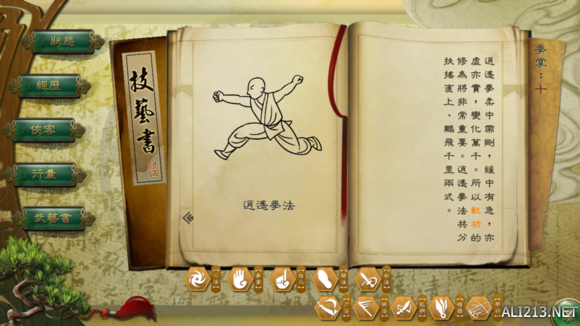 狀態
經歷
俠客
行囊
武藝書
技藝書
逍遙拳法
拳掌：十
逍遙拳柔中帶剛，緩中有急，亦
虛亦實，變化萬千。所以軟功的
修為將非常重要。逍遙拳法共分
扶搖直上、鵬飛千里兩式。
ALI213.NET